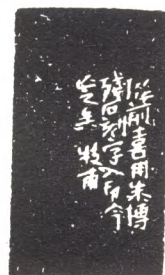 前喜用朱博
殘石刻字入印今
無 牧甫